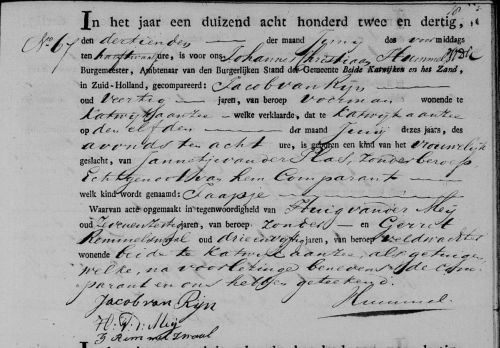 No 67
In het jaar een duizend acht honderd twee en dertig,
den dertienden der maand Juny des voormiddags
ten uure, is voor ons Johannes Christiaan Hummel
Burgemeester, Ambtenaar van den Burgerlijken Stand der Gemeente Beide Katwijken en het Zand,
in Zuid-Holland, gecompareert: Jacob van Rijn
oud veertig jaren, van beroep voerman wonende te
Katwyk aan Zee welke verklaarde, dat te Katwyk aan Zee
op den elfden der maand Juny dezes jaars, des
avonds ten acht ure, is geboren een kind van het vrouwelijk
geslacht, van Jannetje van der Plas, zonder beroep
Echtgenoot van hem Comparant
welk kind wordt genaamd: Jaapje
Waarvan acte opgemaakt in tegenwoordigheid van Huig van der Meij
oud jaren, van beroep zonder en Gerrit
Remmelzwaal oud drie en jaren, van beroep veldwachter
wonende beide te Katwyk aan Zee, als getuigen
welke, na voorlezinge benevens de com-
parant en ons hebben geteekend.
Jacob van Rijn
Hummel
H: v: d: Meij
G Remmelzwaal
In